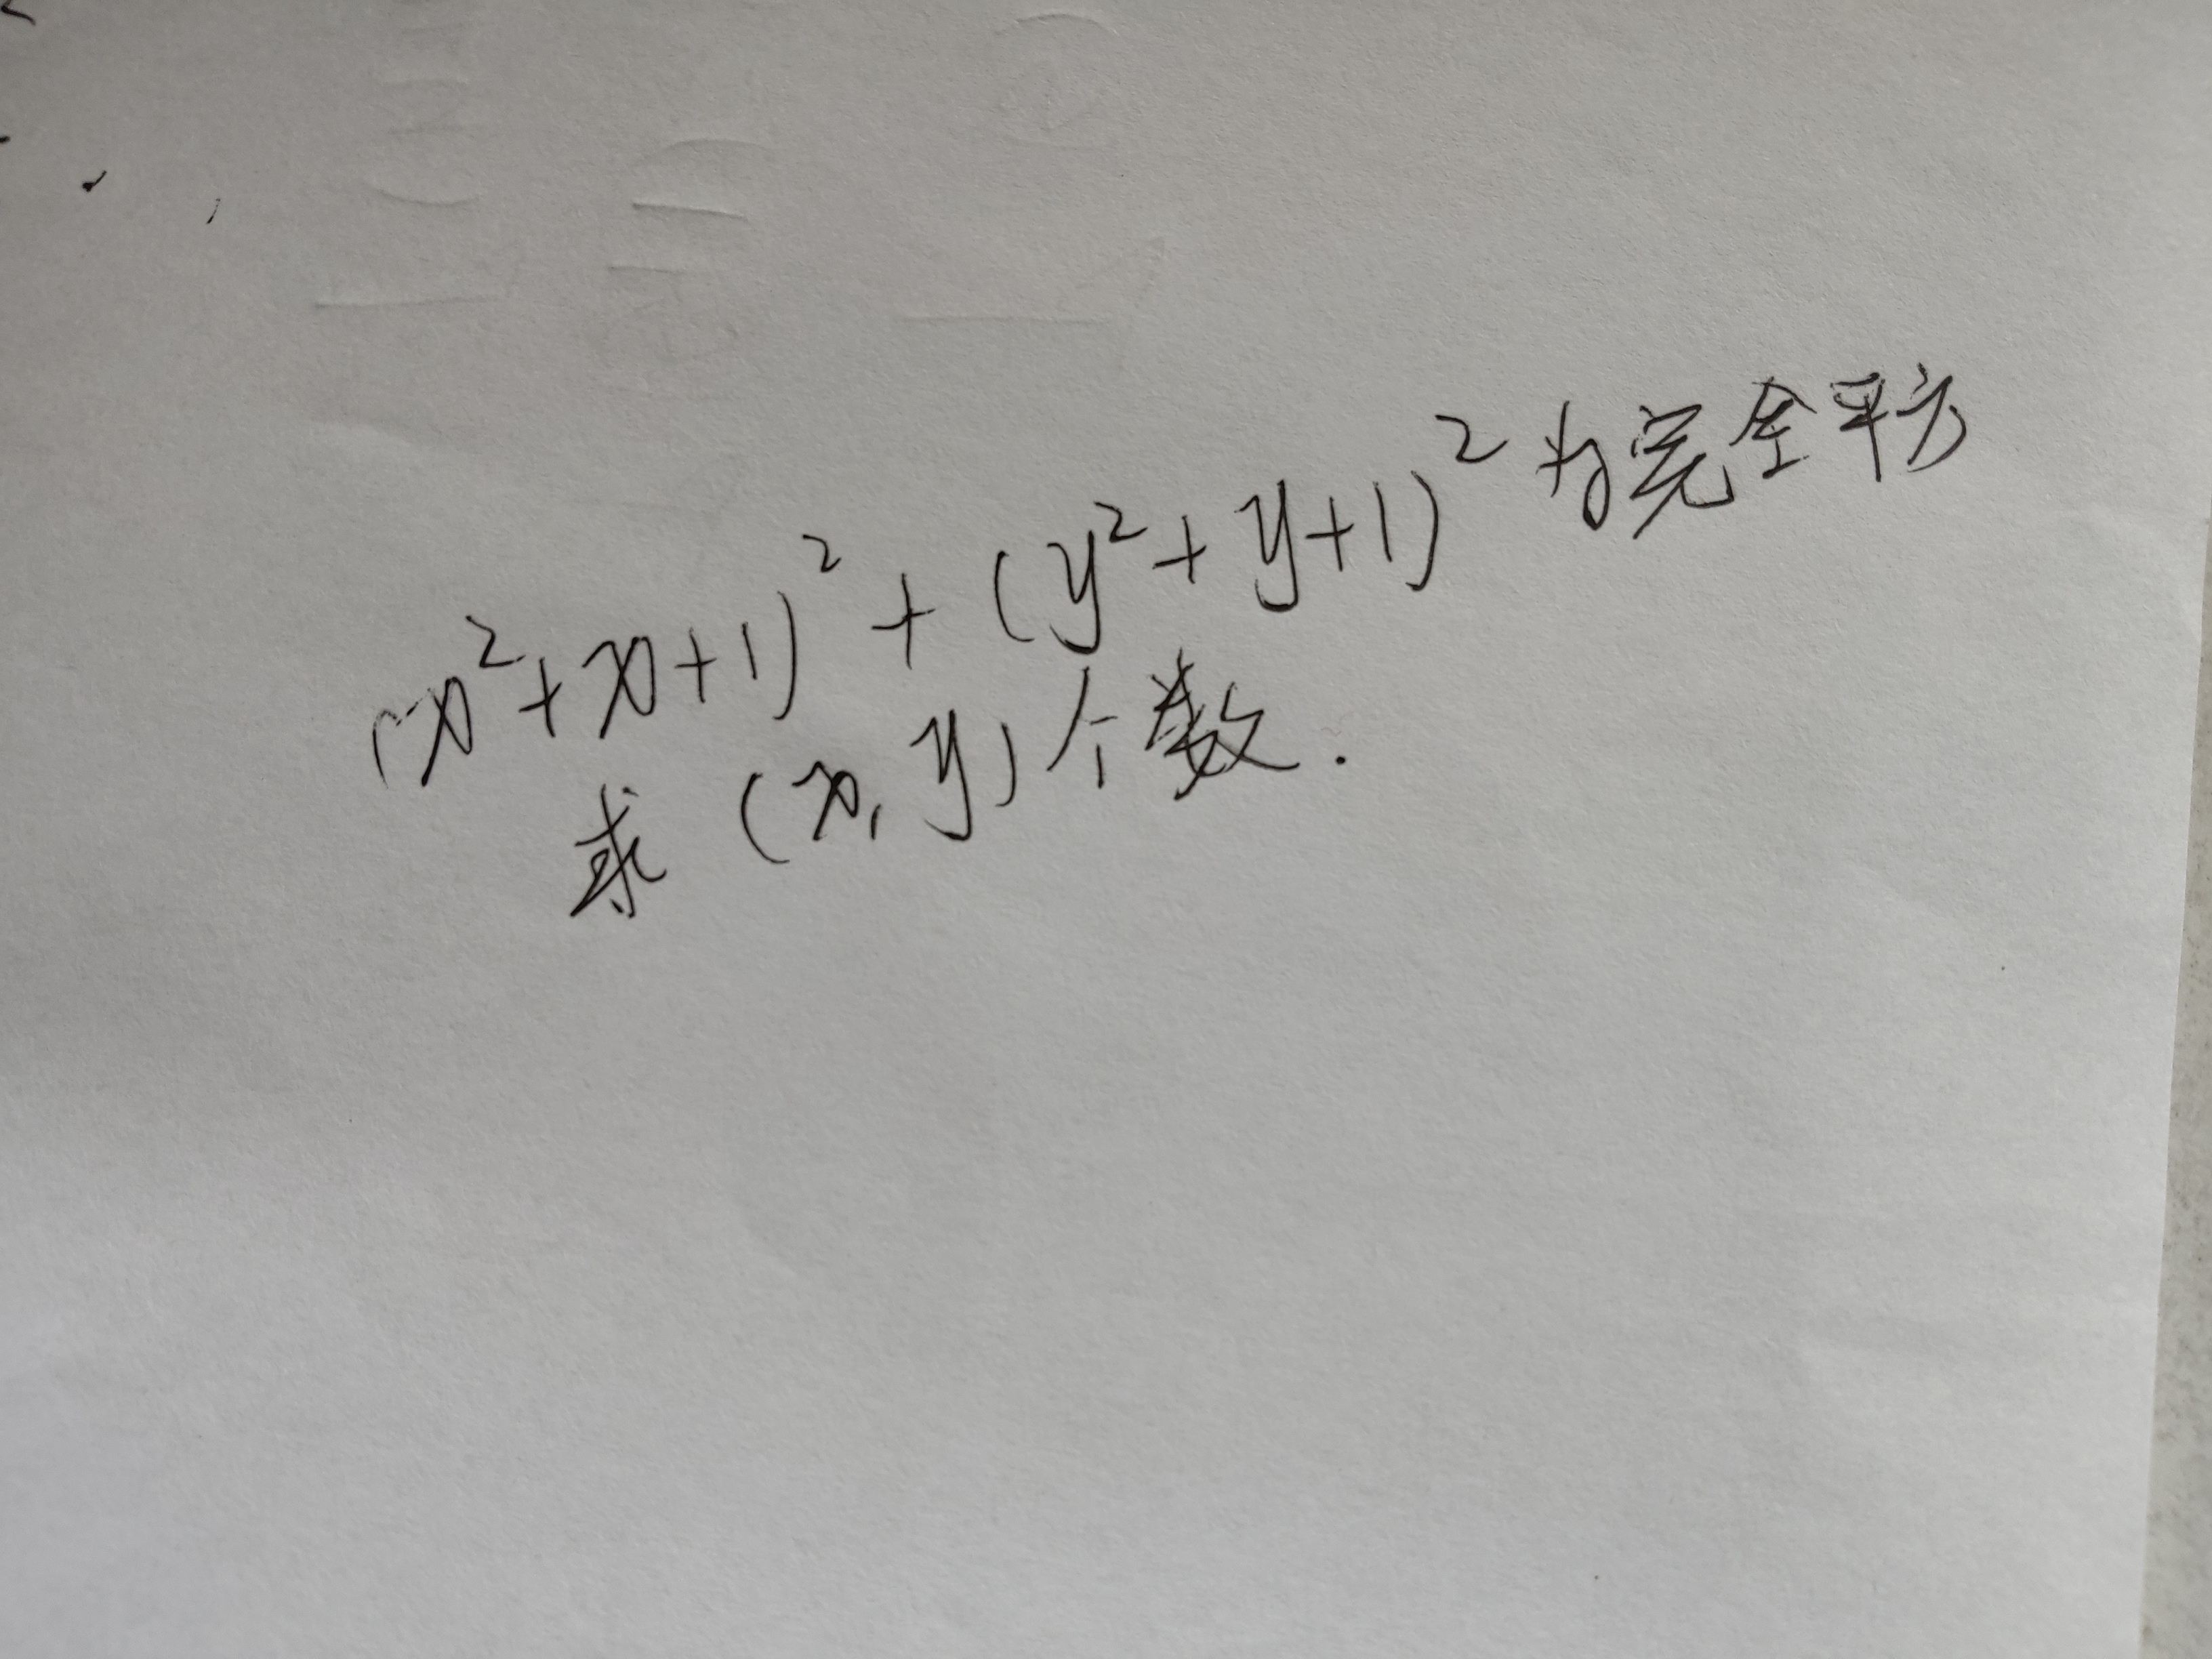 (x²+x+1)²+(y²+y+1)²为完全平方
求(x,y)个数.